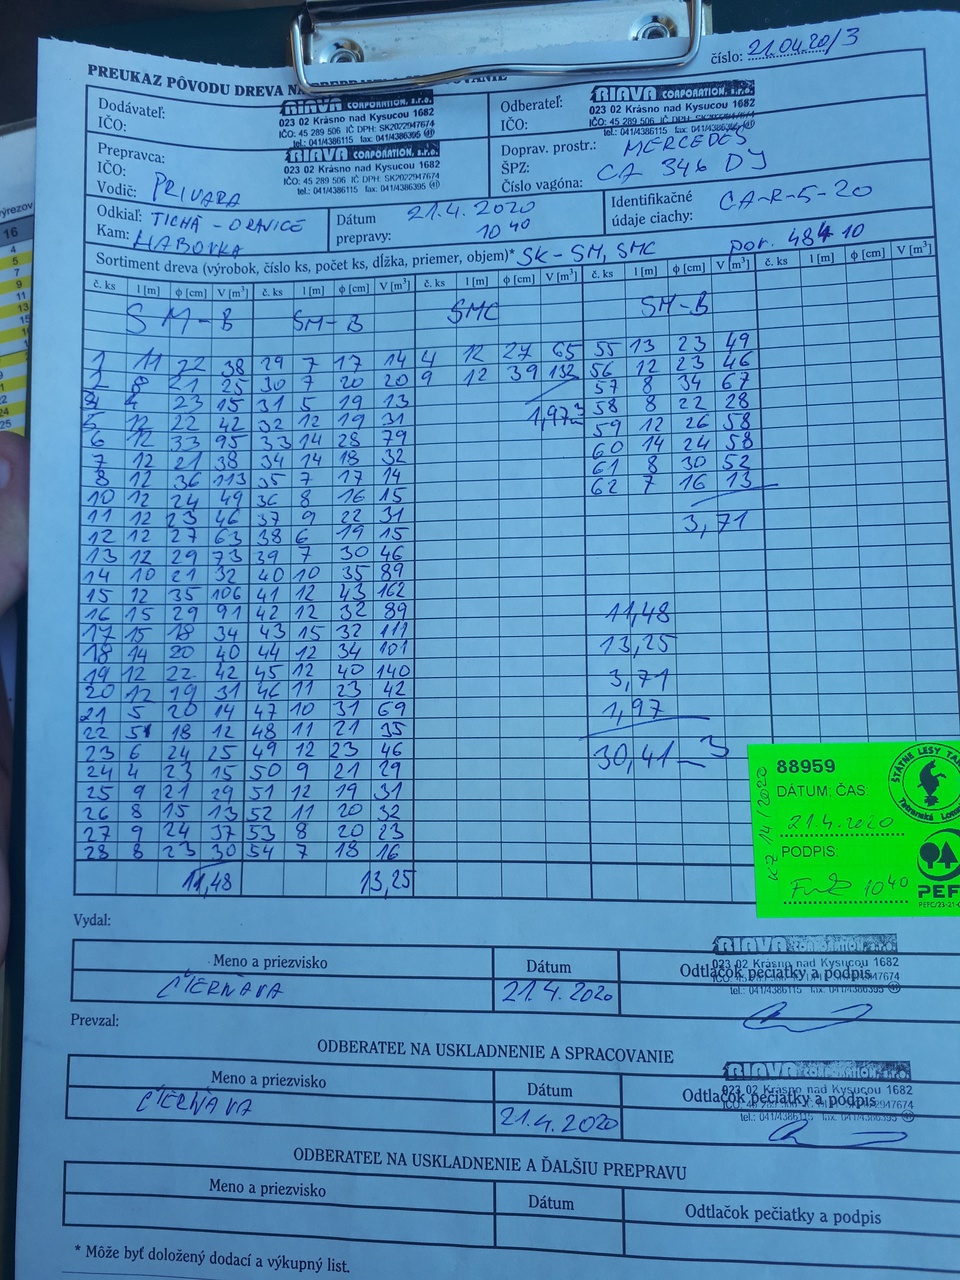 číslo: 21.04.20/3
PREUKAZ PÔVODU DREVA
Dodávateľ:
IČO:
RIAVA CORPORATION, s.r.o.
023 02 Krásno nad Kysucou 1682
IČO: 45 289 506 IČ DPH: SK2022947674
tel.: 041/4386115 fax: 041/4386395
Odberateľ:
IČO:
RIAVA CORPORATION, s.r.o.
023 02 Krásno nad Kysucou 1682
IČO: 45 289 506 IČ DPH: SK2022947674
tel.: 041/4386115 fax: 041/4386395
Prepravca:
IČO:
Vodič: PRIVARA
RIAVA CORPORATION, s.r.o.
023 02 Krásno nad Kysucou 1682
IČO: 45 289 506 IČ DPH: SK2022947674
tel.: 041/4386115 fax: 041/4386395
Doprav. prostr.: MERCEDES
ŠPZ: CA 346 DJ
Číslo vagóna:
Odkiaľ: TICHÁ - ORAVICE
Kam: HABOVKA
Dátum 21.4.2020
prepravy: 10 40
Identifikačné
údaje ciachy: CA-R-5-20
Sortiment dreva (výrobok, číslo ks, počet ks, dĺžka, priemer, objem)* SK - SM, SMC
č. ks l [m] ϕ [cm] V [m³] č. ks l [m] ϕ [cm] V [m³] č. ks l [m] ϕ [cm] V [m³] č. ks l [m] ϕ [cm] V [m³] č. ks l [m] ϕ [cm] V [m³]
SM-B SM-B SMC SM-B
1 11 22 38 29 7 17 14 4 12 27 65 55 13 23 49
2 8 21 25 30 7 20 20 9 12 39 132 56 12 23 46
3 4 23 15 31 5 19 13 57 8 34 67
5 12 22 42 32 12 19 31 1,97 58 8 22 28
6 12 33 95 33 14 28 79 59 12 26 58
7 12 21 38 34 14 18 32 60 14 24 58
8 12 36 113 35 7 17 14 61 8 30 52
10 12 24 49 36 8 16 15 62 7 16 13
11 12 23 46 37 9 22 31 3,71
12 12 27 63 38 6 19 15
13 12 29 73 39 7 30 46
14 10 21 32 40 10 35 89
15 12 35 106 41 12 43 162
16 15 29 91 42 12 32 89 11,48
17 15 18 34 43 15 32 111 13,25
18 14 20 40 44 12 34 101
19 12 22 42 45 12 40 140 3,71
20 12 19 31 46 11 23 42
21 5 20 14 47 10 31 69 1,97
22 5 18 12 48 11 21 35
23 6 24 25 49 12 23 46 30,41 m3
24 4 23 15 50 9 21 29
25 9 21 29 51 12 19 31
26 8 15 13 52 11 20 32
27 9 24 37 53 8 20 23
28 8 23 30 54 7 18 16
11,48 13,25
88959
DÁTUM; ČAS:
21.4.2020
PODPIS:
10 40
PEFC/23-21-
Vydal:
Meno a priezvisko Dátum Odtlačok pečiatky a podpis
ČIERŇAVA 21.4.2020
RIAVA CORPORATION, s.r.o.
023 02 Krásno nad Kysucou 1682
tel.: 041/4386115 fax: 041/4386395
Prevzal:
ODBERATEĽ NA USKLADNENIE A SPRACOVANIE
Meno a priezvisko Dátum Odtlačok pečiatky a podpis
ČIERŇAVA 21.4.2020
RIAVA CORPORATION, s.r.o.
023 02 Krásno nad Kysucou 1682
tel.: 041/4386115 fax: 041/4386395
ODBERATEĽ NA USKLADNENIE A ĎALŠIU PREPRAVU
Meno a priezvisko Dátum Odtlačok pečiatky a podpis
* Môže byť doložený dodací a výkupný list.